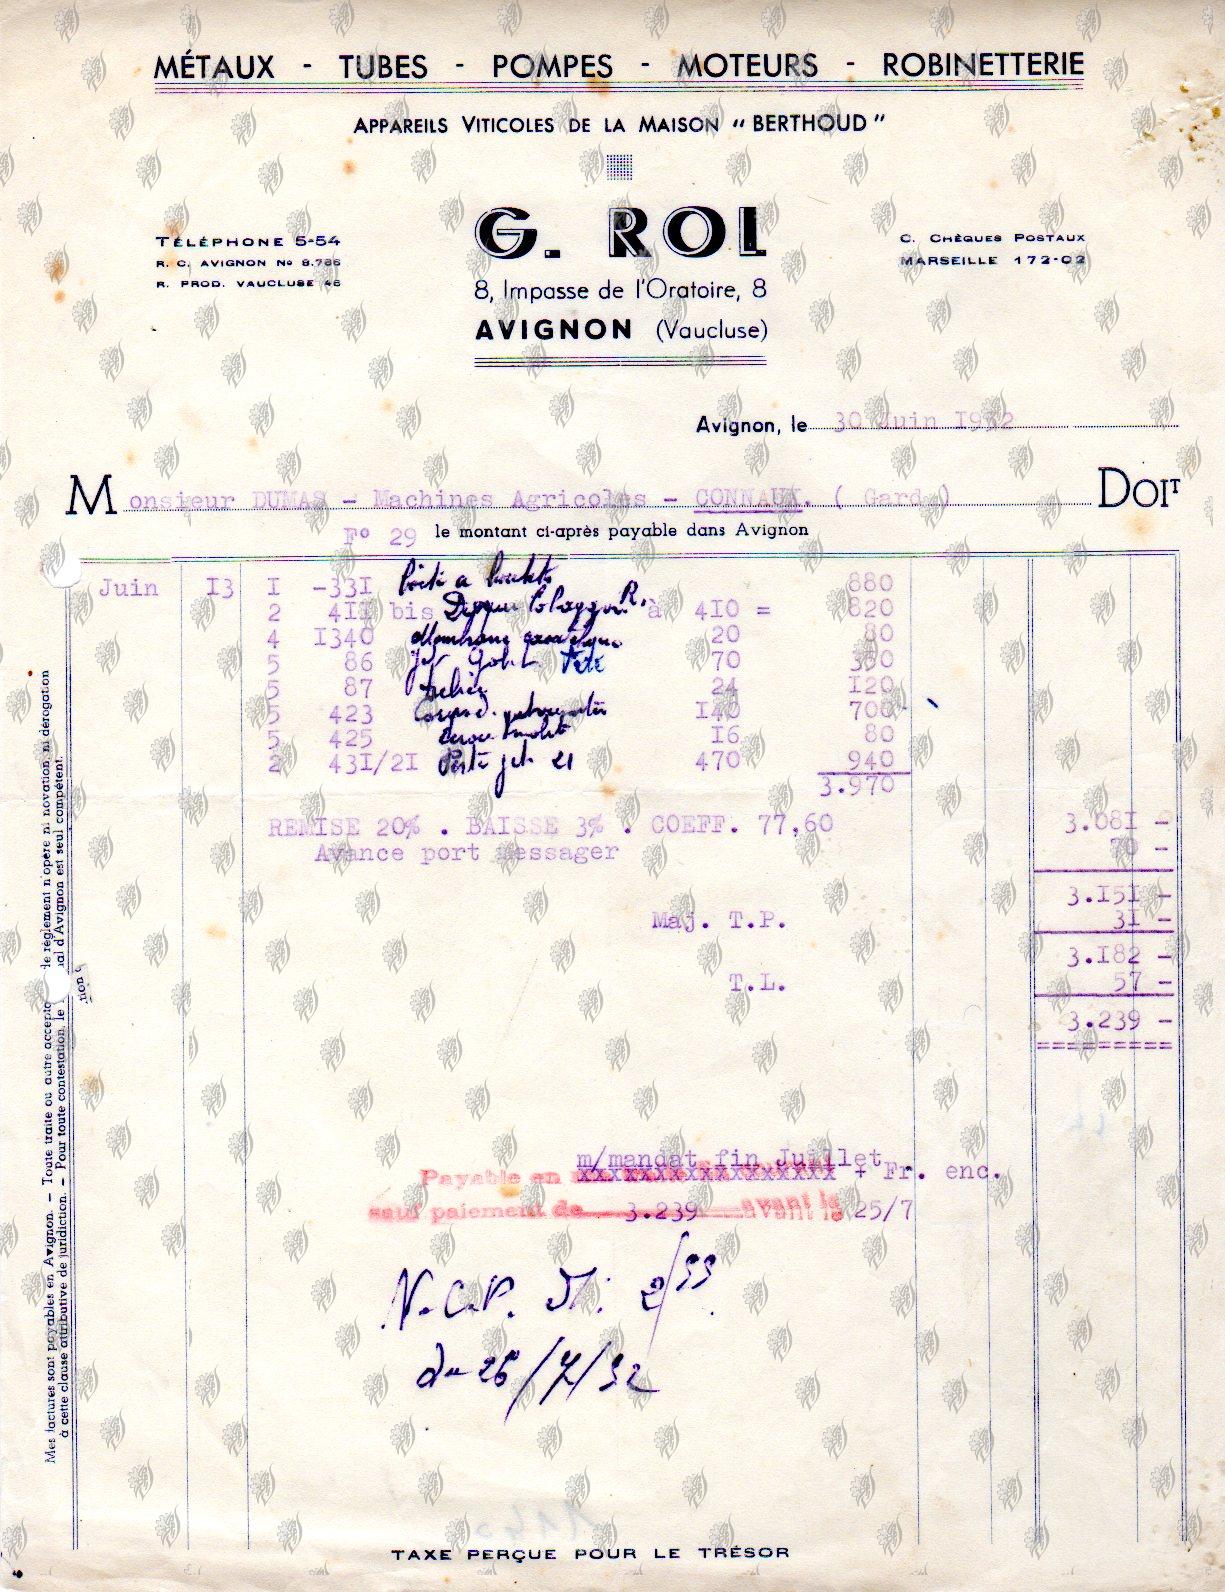 MÉTAUX - TUBES - POMPES - MOTEURS - ROBINETTERIE
APPAREILS VITICOLES DE LA MAISON “ BERTHOUD ”
G. ROL
TÉLÉPHONE 5-54
R. C. AVIGNON No 8.786
R. PROD. VAUCLUSE 46
C. CHÈQUES POSTAUX
MARSEILLE 172-02
8, Impasse de l'Oratoire, 8
AVIGNON (Vaucluse)
Avignon, le 30 Juin I952
Monsieur DUMAS - Machines Agricoles - CONNAUX. ( Gard ) DOIT
F° 29 le montant ci-après payable dans Avignon
Juin I3 I -33I 880
2 4II bis à 4I0 = 820
4 I340 20 80
5 86 Jet 70 350
5 87 24 I20
5 423 I40 700
5 425 I6 80
2 43I/2I Porte jet 21 470 940
3.970
REMISE 20% . BAISSE 3% . COEFF. 77,60 3.08I -
Avance port messager 70 -
3.I5I -
Maj. T.P. 3I -
3.I82 -
T.L. 57 -
3.239 -
m/mandat fin Juillet
Payable en xxxxxxxxxxxxxxxxx + Fr. enc.
sauf paiement de 3.239 avant le 25/7
N.C.P.
du 26/7/52
Mes factures sont payables en Avignon. — Toute traite ou autre accepta de règlement n'opère ni novation, ni dérogation
à cette clause attributive de juridiction. — Pour toute contestation, le al d'Avignon est seul compétent.
TAXE PERÇUE POUR LE TRÉSOR